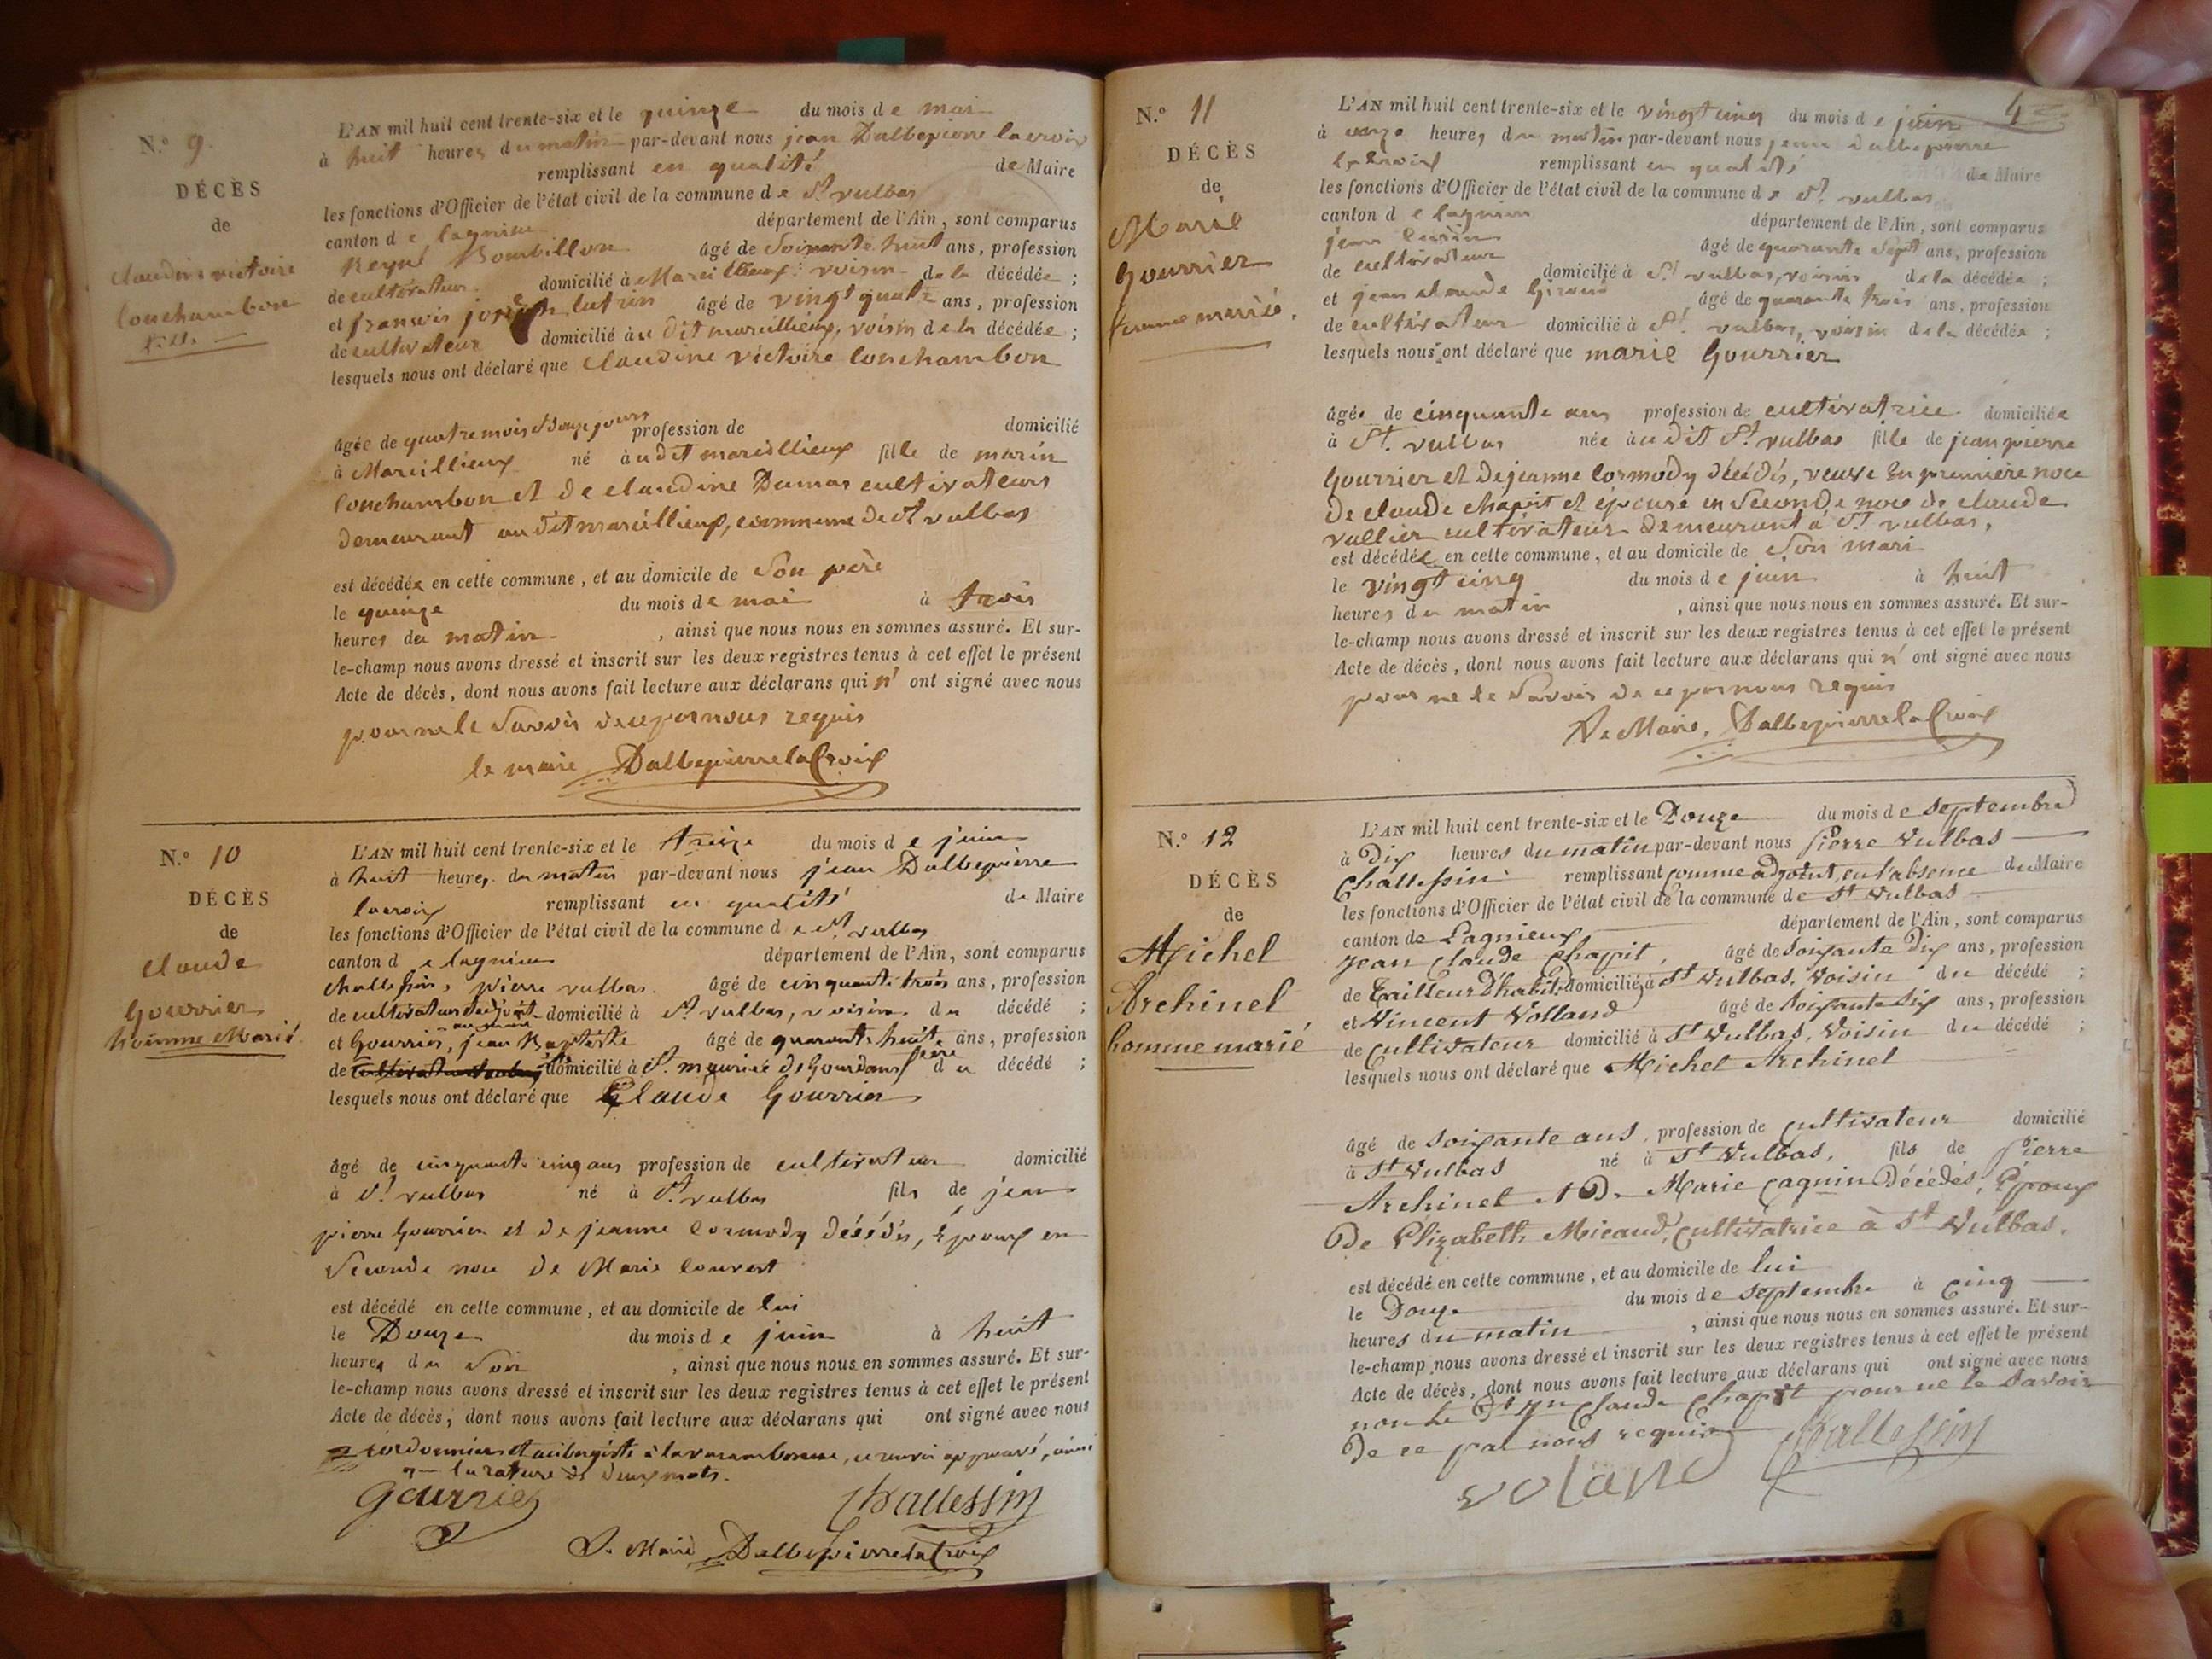 N.° 9.
DÉCÈS
de
claudine victoire
louchambon
fille
L'AN mil huit cent trente-six et le quinze du mois de mai
à huit heures du matin par-devant nous jean Dalbepierre lacroix
remplissant en qualité de Maire
les fonctions d'Officier de l'état civil de la commune de St. vulbas
canton de lagnieu département de l'Ain, sont comparus
Bombillon âgé de Soixante huit ans, profession
de cultivateur domicilié à Marcillieux voisin de la décédée ;
et françois joseph lutrin âgé de vingt quatre ans, profession
de cultivateur domicilié au dit marcillieux, voisin de la décédée ;
lesquels nous ont déclaré que claudine victoire louchambon
âgée de quatre mois et douze jours profession de domicilié
à Marcillieux né audit marcillieux fille de marin
louchambon et de claudine Dumas cultivateurs
demeurant au dit marcillieux, commune de St vulbas
est décédée en cette commune, et au domicile de Son père
le quinze du mois de mai à trois
heures du matin , ainsi que nous nous en sommes assuré. Et sur-
le-champ nous avons dressé et inscrit sur les deux registres tenus à cet effet le présent
Acte de décès, dont nous avons fait lecture aux déclarans qui n' ont signé avec nous
pour ne le Savoir de ce par nous requis
le maire Dalbepierre la Croix
N.° 10
DÉCÈS
de
claude
Gourrier
homme Marié
L'AN mil huit cent trente-six et le treize du mois de juin
à huit heures du matin par-devant nous jean Dalbepierre
lacroix remplissant en qualité de Maire
les fonctions d'Officier de l'état civil de la commune de St. vulbas
canton de lagnieu département de l'Ain, sont comparus
challessin, pierre vulbas. âgé de cinquante trois ans, profession
de cultivateur adjoint au maire domicilié à St. vulbas, voisin du décédé ;
et Gourrier, jean Baptiste âgé de quarante huit ans, profession
de domicilié à St. maurice de Gourdans frère du décédé ;
lesquels nous ont déclaré que Claude Gourrier
âgé de cinquante cinq ans profession de cultivateur domicilié
à St. vulbas né à St. vulbas fils de jean
pierre Gourrier et de jeanne Cormody décédés, époux en
Seconde noce de Marie Convert
est décédé en cette commune, et au domicile de lui
le Douze du mois de juin à huit
heures du Soir , ainsi que nous nous en sommes assuré. Et sur-
le-champ nous avons dressé et inscrit sur les deux registres tenus à cet effet le présent
Acte de décès, dont nous avons fait lecture aux déclarans qui ont signé avec nous
cordonnier et aubergiste à la , ce renvoi approuvé, ainsi
que la rature de deux mots.
Gourrier Challessin
Le Maire Dalbepierre la Croix
4
N.° 11
DÉCÈS
de
Marie
Gourrier
femme mariée.
L'AN mil huit cent trente-six et le vingt cinq du mois de juin
à onze heures du matin par-devant nous jean Dalbepierre
lacroix remplissant en qualité de Maire
les fonctions d'Officier de l'état civil de la commune de St. vulbas
canton de lagnieu département de l'Ain, sont comparus
jean âgé de quarante Sept ans, profession
de cultivateur domicilié à St vulbas, voisin de la décédée ;
et jean claude Giroud âgé de quarante trois ans, profession
de cultivateur domicilié à St. vulbas, voisin de la décédée ;
lesquels nous ont déclaré que marie Gourrier
âgée de cinquante ans profession de cultivatrice domiciliée
à St. vulbas née audit St. vulbas fille de jean pierre
Gourrier et de jeanne Cormody décédés, veuve En première noce
de claude chapit et épouse en Seconde noce de claude
vallier cultivateur demeurant à St. vulbas,
est décédée en cette commune, et au domicile de Son mari
le vingt cinq du mois de juin à huit
heures du matin , ainsi que nous nous en sommes assuré. Et sur-
le-champ nous avons dressé et inscrit sur les deux registres tenus à cet effet le présent
Acte de décès, dont nous avons fait lecture aux déclarans qui n' ont signé avec nous
pour ne le Savoir de ce par nous requis
Le Maire, Dalbepierre la Croix
N.° 12
DÉCÈS
de
Michel
Archinel
homme marié
L'AN mil huit cent trente-six et le Douze du mois de septembre
à Dix heures du matin par-devant nous Pierre Vulbas
Challessin remplissant comme adjoint, en l'absence du Maire
les fonctions d'Officier de l'état civil de la commune de St Vulbas
canton de Lagnieux département de l'Ain, sont comparus
Jean Claude Chapit, âgé de soixante Dix ans, profession
de Tailleur d'habits domicilié à St Vulbas, voisin du décédé ;
et Vincent Volland âgé de soixante Dix ans, profession
de Cultivateur domicilié à St Vulbas, Voisin du décédé ;
lesquels nous ont déclaré que Michel Archinel
âgé de soixante ans, profession de cultivateur domicilié
à St Vulbas né à St Vulbas, fils de Pierre
Archinel et De Marie Cagnin Décédés, Epoux
De Elizabeth Micaud, Cultivatrice à St Vulbas.
est décédé en cette commune, et au domicile de lui
le Douze du mois de septembre à cinq
heures du matin , ainsi que nous nous en sommes assuré. Et sur-
le-champ nous avons dressé et inscrit sur les deux registres tenus à cet effet le présent
Acte de décès, dont nous avons fait lecture aux déclarans qui ont signé avec nous
non le Dt Jn Claude Chapit pour ne le savoir
De ce par nous requis Challessin
voland